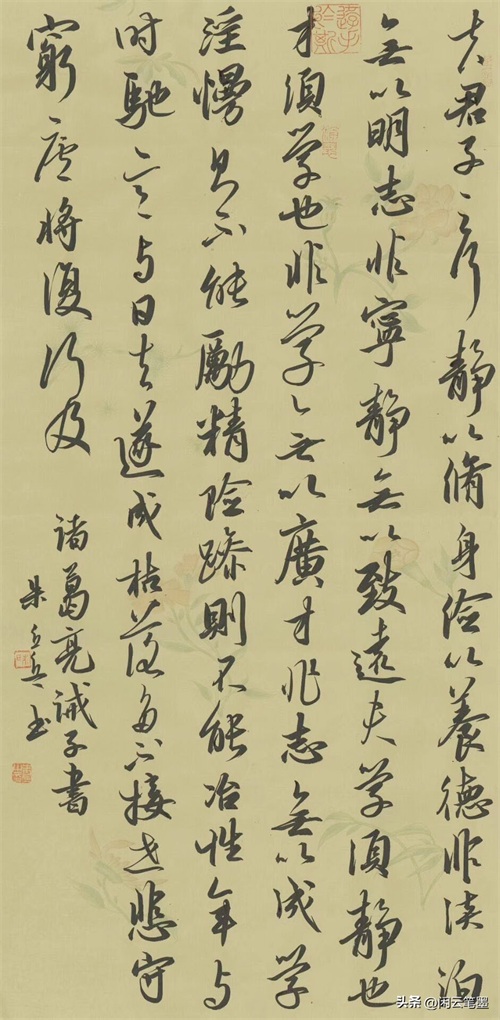 夫君子之行静以脩身俭以養德非淡泊
無以明志非寧静無以致遠夫学須静也
才須学也非学無以廣才非志無以成学
淫慢則不能勵精险躁則不能冶性年与
时馳意与日去遂成枯落多不接世悲守
窮廬將復何及
诸葛亮诫子書
朱书
头条 @闲云笔墨